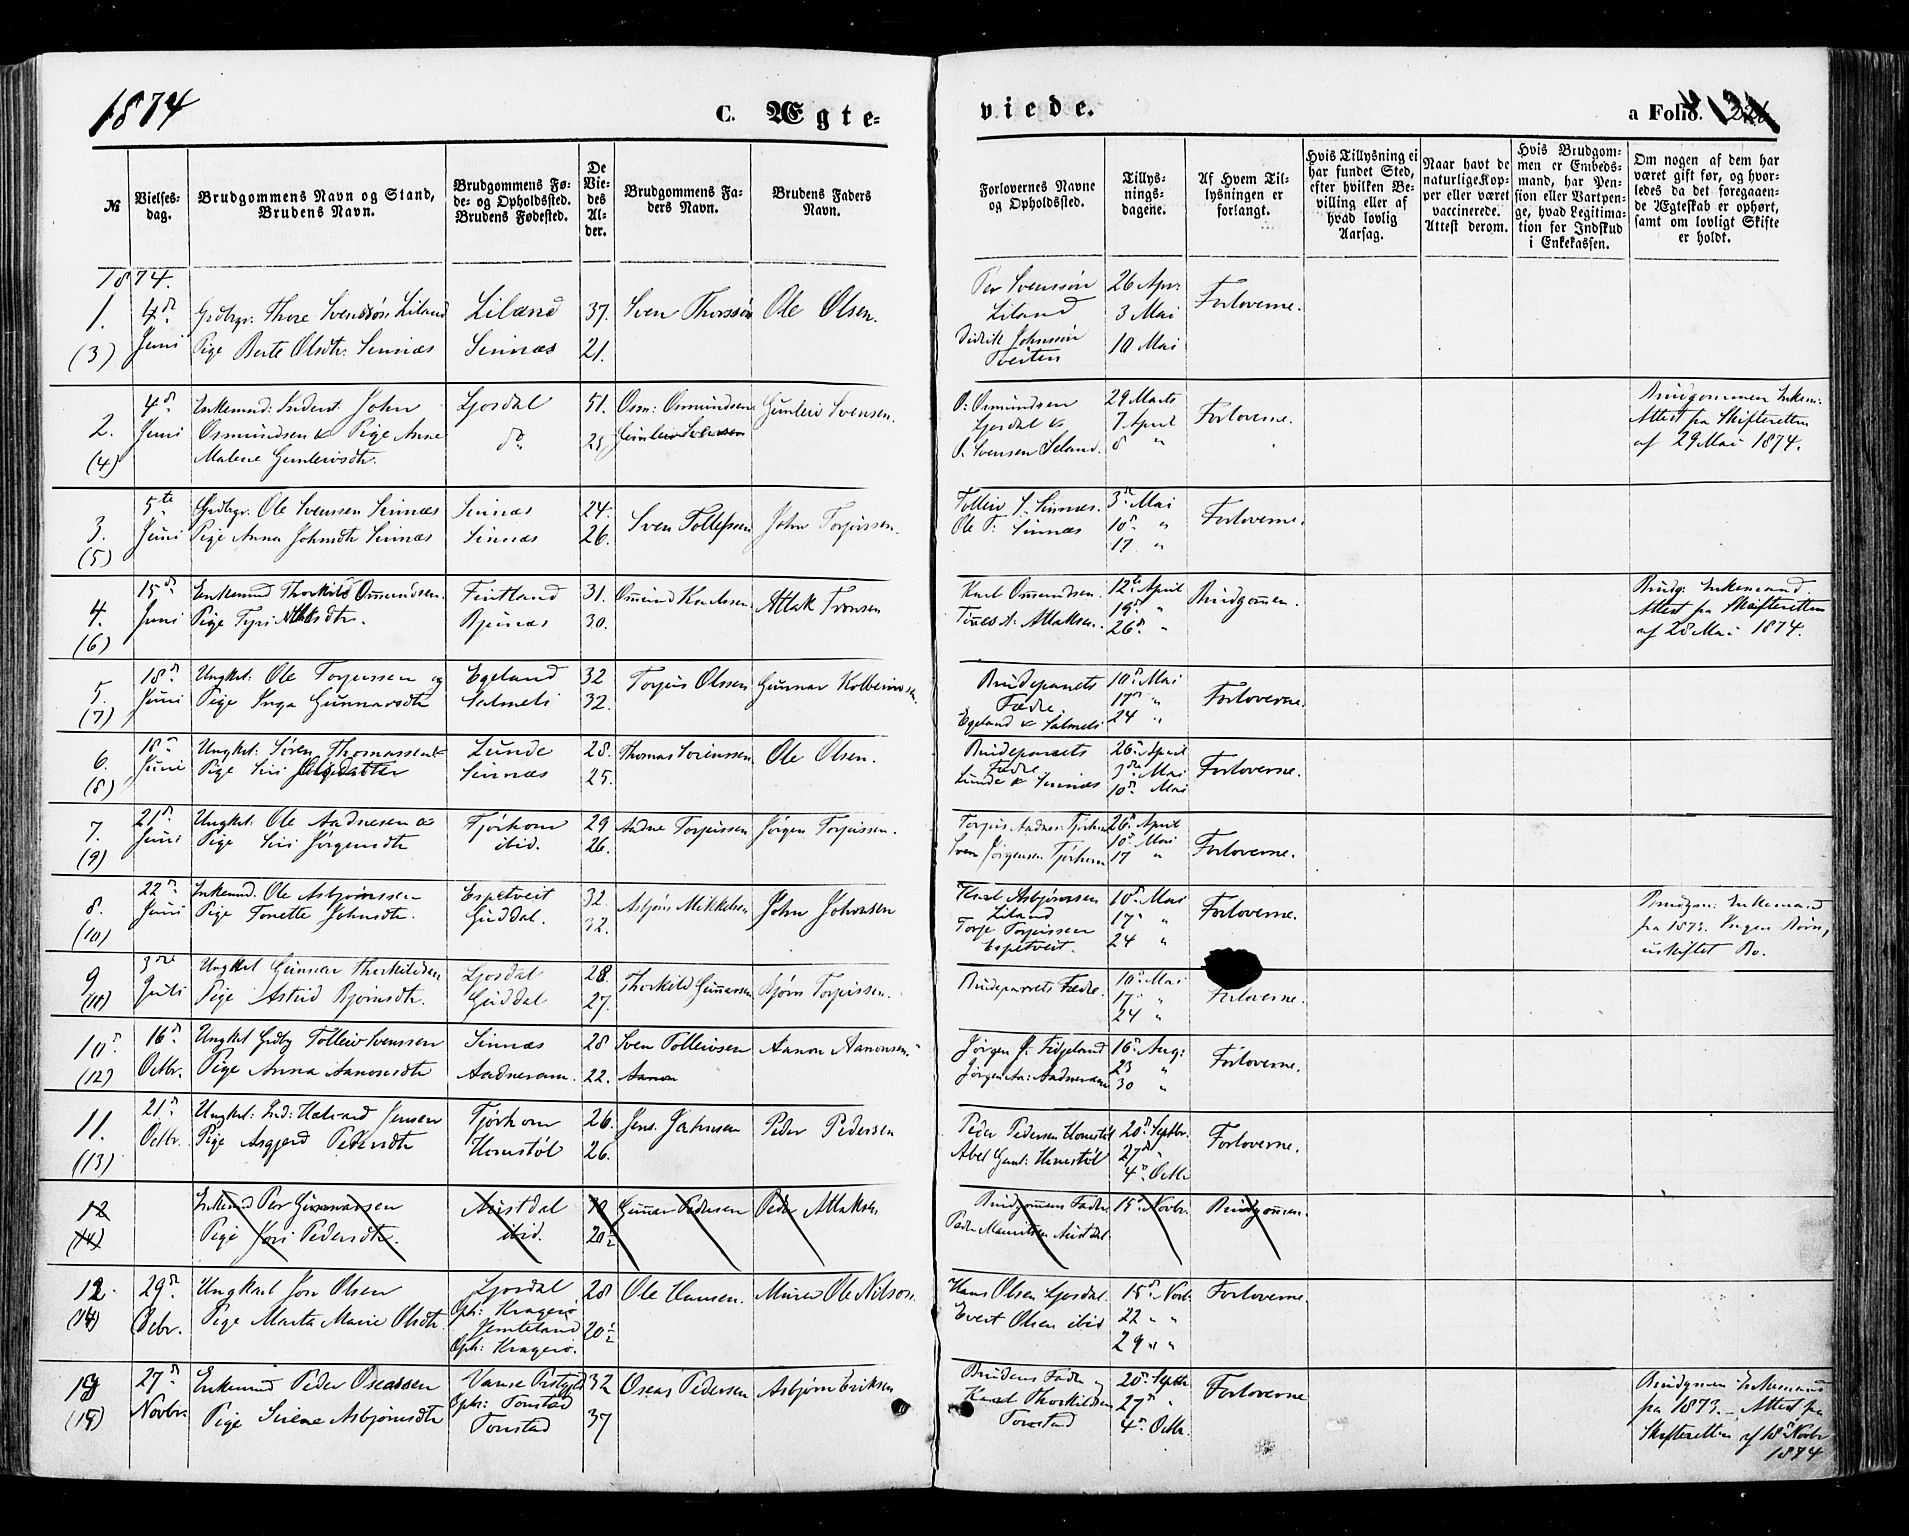 1874
C. Ægte-
viede.
a Folio.
№
Vielses-
dag.
Brudgommens Navn og Stand,
Brudens Navn.
Brudgommens Fø-
de- og Opholdssted.
Brudens Fødested.
De
Vie-
des
Al-
der.
Brudgommens Fa-
ders Navn.
Brudens Faders
Navn.
Forlovernes Navne
og Opholdssted.
Tillys-
nings-
dagene.
Af Hvem Til-
lysningen er
forlangt.
Hvis Tillysning ei
har fundet Sted,
efter hvilken Be-
villing eller af
hvad lovlig
Aarsag.
Naar havt de
naturlige Kop-
per eller været
vaccinerede.
Attest derom.
Hvis Brudgom-
men er Embeds-
mand, har Pen-
sion eller Vartpen-
ge, hvad Legitima-
tion for Indskud
i Enkekassen.
Om nogen af dem har
været gift før, og hvor-
ledes da det foregaaen-
de Ægteskab er ophørt,
samt om lovligt Skifte
er holdt.
1874.
1.
(3)
4de
Juni
Grdbgr. Thore Svensøn Liland
Pige Berte Olsdtr. Sinnæs
Liland
Sinnæs
37.
21.
Sven Thorssøn
Ole Olsen.
Per Svenssøn
Liland
Didrik Johnssøn
Tveiten
26 Apr.
3 Mai
10 Mai
Forloverne.
2.
(4)
4de
Juni
Enkemd: Inderst. John
Osmundsen & Pige Anne
Malene Gunleivsdtr.
Ljosdal
do
51.
25
Osm: Osmundsen
Gunleiv Svensen
Gunleiv Svensen.
O. Osmundsen
Ljosdal &
O. Svensen Seland.
29 Marts
7 April
8 "
Forloverne.
Brudgommen Enkem:
Attest fra Skifteretten
af 29 Mai 1874.
3.
(5)
5te
Juni
Grdbgr. Ole Svenssen Sinnæs
Pige Anna Johnsdtr Sinnæs
Sinnæs
Sinnæs
24.
26.
Sven Tollefssen
John Torjussen.
Tolleiv S. Sinnæs.
Ole T. Sinnæs
3de Mai
10de "
17 "
Forloverne.
4.
(6)
15de
Juni
Enkemd Thorkild Osmundsen.
Pige Tyri Atlaksdtr.
Fintland
Bjunæs
31.
30.
Osmund Karlssen
Atlak Tronsen
Karl Osmundsen.
Tønes A. Atlaksen.
12te April
19de "
26de "
Brudgommen.
Brudg. Enkemand.
Attest fra Skifteretten
af 28 Mai 1874.
5.
(7)
18de
Juni
Ungkrl: Ole Torjussen og
Pige Inga Gunnarsdtr
Egeland
Salmeli
32
32.
Torjus Olssen
Brudeparrets
Fædre.
Egeland & Salmeli
10de Mai
17de "
24 "
Forloverne.
6.
(8)
18de
Juni
Ungkrl: Søren Thomassen &
Pige Siri Olsdatter
Lunde
Sinnæs
28.
25.
Thomas Sørenssen
Ole Olsen.
Brudeparrets
Fædre
Lunde & Sinnæs
26de April
3die Mai
10de Mai
Forloverne.
7.
(9)
21de
Juni
Ungkrl. Ole Aadnesen &
Pige Siri Jørgensdtr
Tjørhom
ibid.
29
26.
Aadne Torjussen
Jørgen Torjussen.
Torjus Aadnes: Tjørhom
Sven Jørgensen Tjørhom
26de April
10de Mai
17 "
Forloverne.
8.
(10)
22de
Juni
Enkemd. Ole Asbjørnssen
Pige Tonette Johnsdtr.
Espetveit
Guddal.
32.
32.
Asbjørn Mikkelsen
John Johnsen
Karl Asbjørnssen
Liland
Torje Torjussen
Espetveit.
10de Mai
17de "
24 "
Forloverne.
Brudgm: Enkemand
fra 1873. Ingen Børn,
uskiftet Bo.
9
(11)
3die
Juli
Ungkrl Gunnar Thorkildsen
Pige Astrid Bjørnsdtr.
Ljosdal
Guddal
28
27.
Thorkild Gunnarsen
Bjørn Torjussen.
Brudeparrets Fædre.
10de Mai
17 "
24 "
Forloverne.
10.
(12)
16de
Octbr.
Ungkrl Grdbg Tolleiv Svenssen
Pige Anna Aanonsdtr
Sinnæs
Aadneram.
28
22.
Sven Tolleivsen
Aanon
Aanon Aanonsen.
Jørgen J. Fidjeland
Jørgen Aa: Aadneram
16de Aug:
23 "
30 "
Forloverne.
11.
(13)
21de
Octbr.
Ungkrl: Ind: Halvard Jensen
Pige Asgjerd Pedersdtr
Tjørhom
Homstøl
26.
26.
Jens Jahnsen
Peder Pedersen
Peder Pedersen Homstøl
Abel Gunl: Homstøl
20de Septbr.
27de "
4de Octbr
Forloverne.
12
(14)
Enkemd Per Gunnarssen
Pige Jori Pedersdtr.
Austdal
ibid.
20½
Gunnar Pedersen
Peder Atlaksen
Brudgommens Fader
Peder Mauritsen Austdal.
15de Novbr.
Brudgommen.
12.
(14)
29de
Ungkarl Jon Olsen
Pige Marta Marie Olsdtr
Ljosdal
Oph: Kragerø
Oph: Kragerø.
28
20½
Ole Hansen.
Murer Ole Nilsen
Hans Olsen Ljosdal.
Evert Olsen ibid
15de Novb.
22 " "
29 " "
Forloverne.
13
(15)
27de
Novbr.
Enkemd Peder Oseassen
Pige Sirene Asbjørnsdtr
Vanse Prstgjld
Oph: Tonstad
Tonstad
32
37
Oseas Pedersen
Asbjørn Eriksen
Brudens Fader
Karl Thorkildsen
Tonstad
20de Septbr
27de "
4de Octbr.
Forloverne
Brudgmen Enkemand
fra 1873. Attest fra
Skifteretten af 18de Novbr
1874